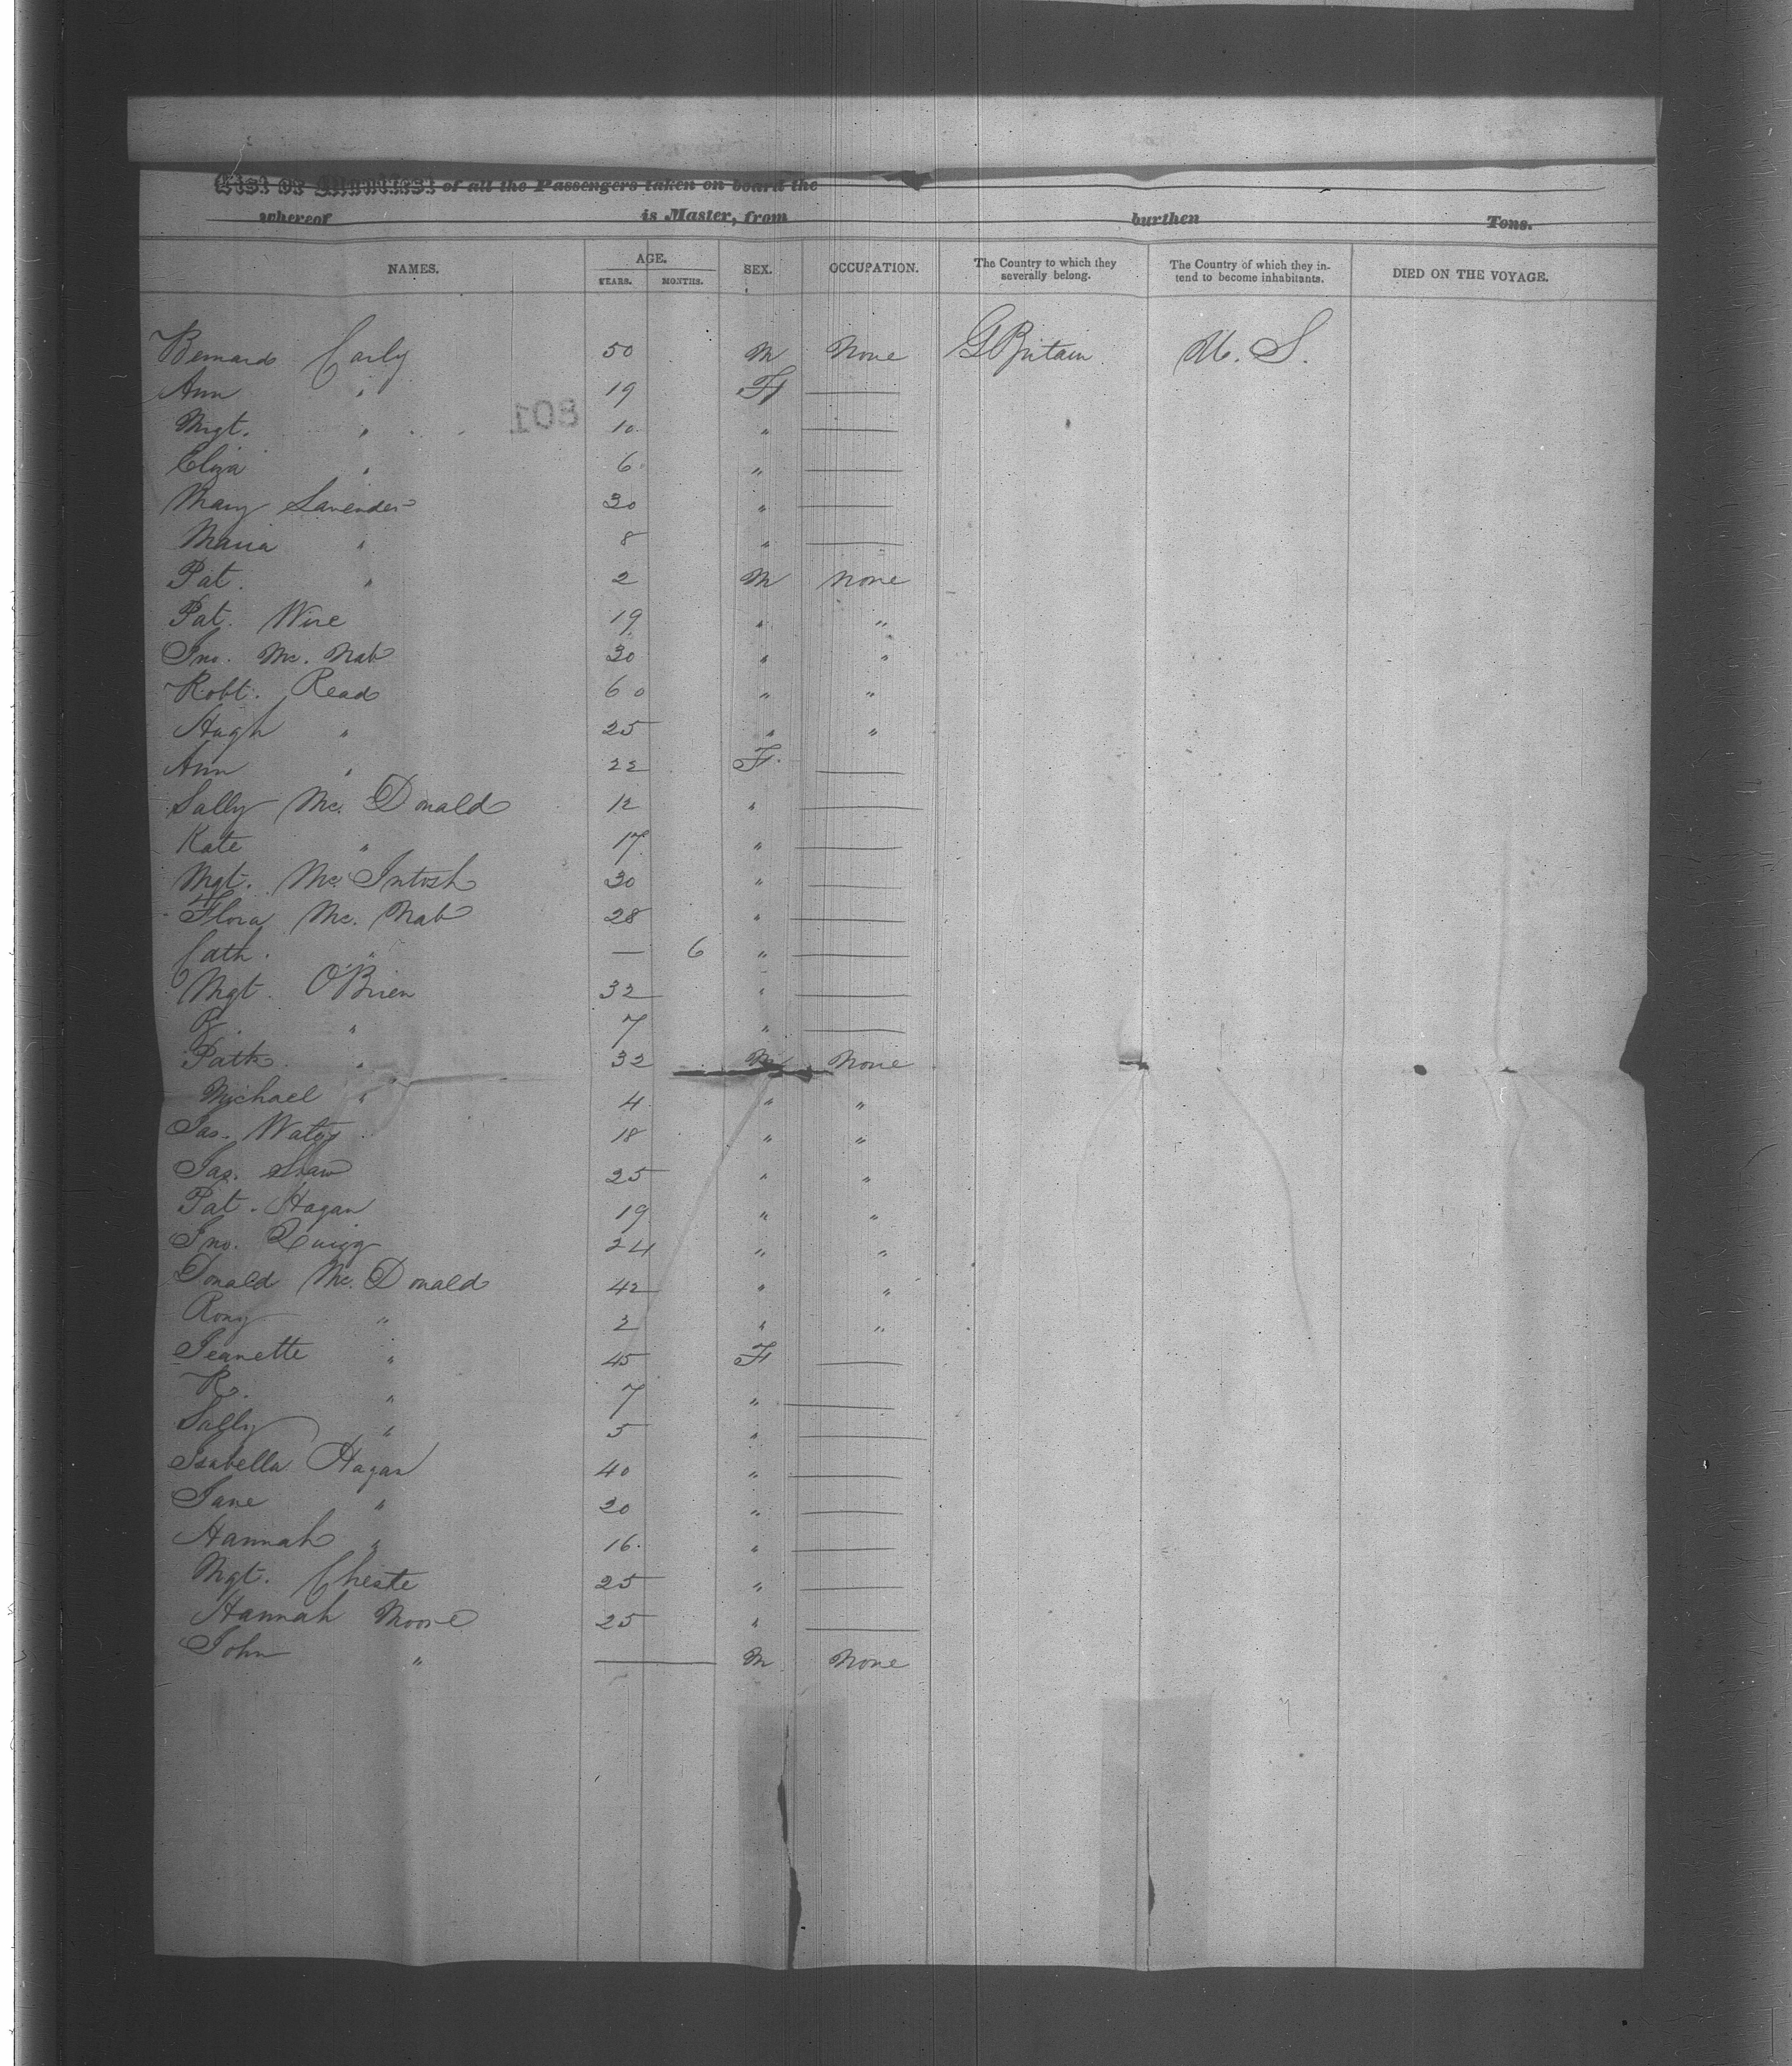 List or Manifest of all the Passengers taken on board the
whereof is Master, from burthen Tons.
NAMES. AGE. YEARS. MONTHS. SEX. OCCUPATION. The Country to which they severally belong. The Country of which they intend to become inhabitants. DIED ON THE VOYAGE.
Bernard Carly 50 M None G Britain U. S.
Ann " 19 F —
801
Mgt. " 10 " —
Eliza " 6 " —
Mary Lavender 30 " —
Maria " 8 " —
Pat. " 2 M None
Pat. Wire 19 " "
Jno. Mc. Nab 30 " "
Robt. Read 60 " "
Hugh " 25 " "
Ann " 22 F —
Sally Mc. Donald 12 " —
Kate " 17 " —
Mgt. Mc. Intosh 30 " —
Flora Mc. Nab 28 " —
Cath. " — 6 " —
Mgt. O'Brien 32 " —
B. " 7 " —
Patk. " 32 M None
Michael " 4 " "
Jas. 18 " "
Jas. Shaw 25 " "
Pat. Hagan 19 " "
Jno. Quigg 24 " "
Donald Mc. Donald 42 " "
Rony " 2 " "
Jeanette " 45 F —
R. " 7 " —
Sally " 5 " —
Isabella Hagan 40 " —
Jane " 20 " —
Hannah " 16 " —
Mgt. Cheste 25 " —
Hannah Moore 25 " —
John " — M None